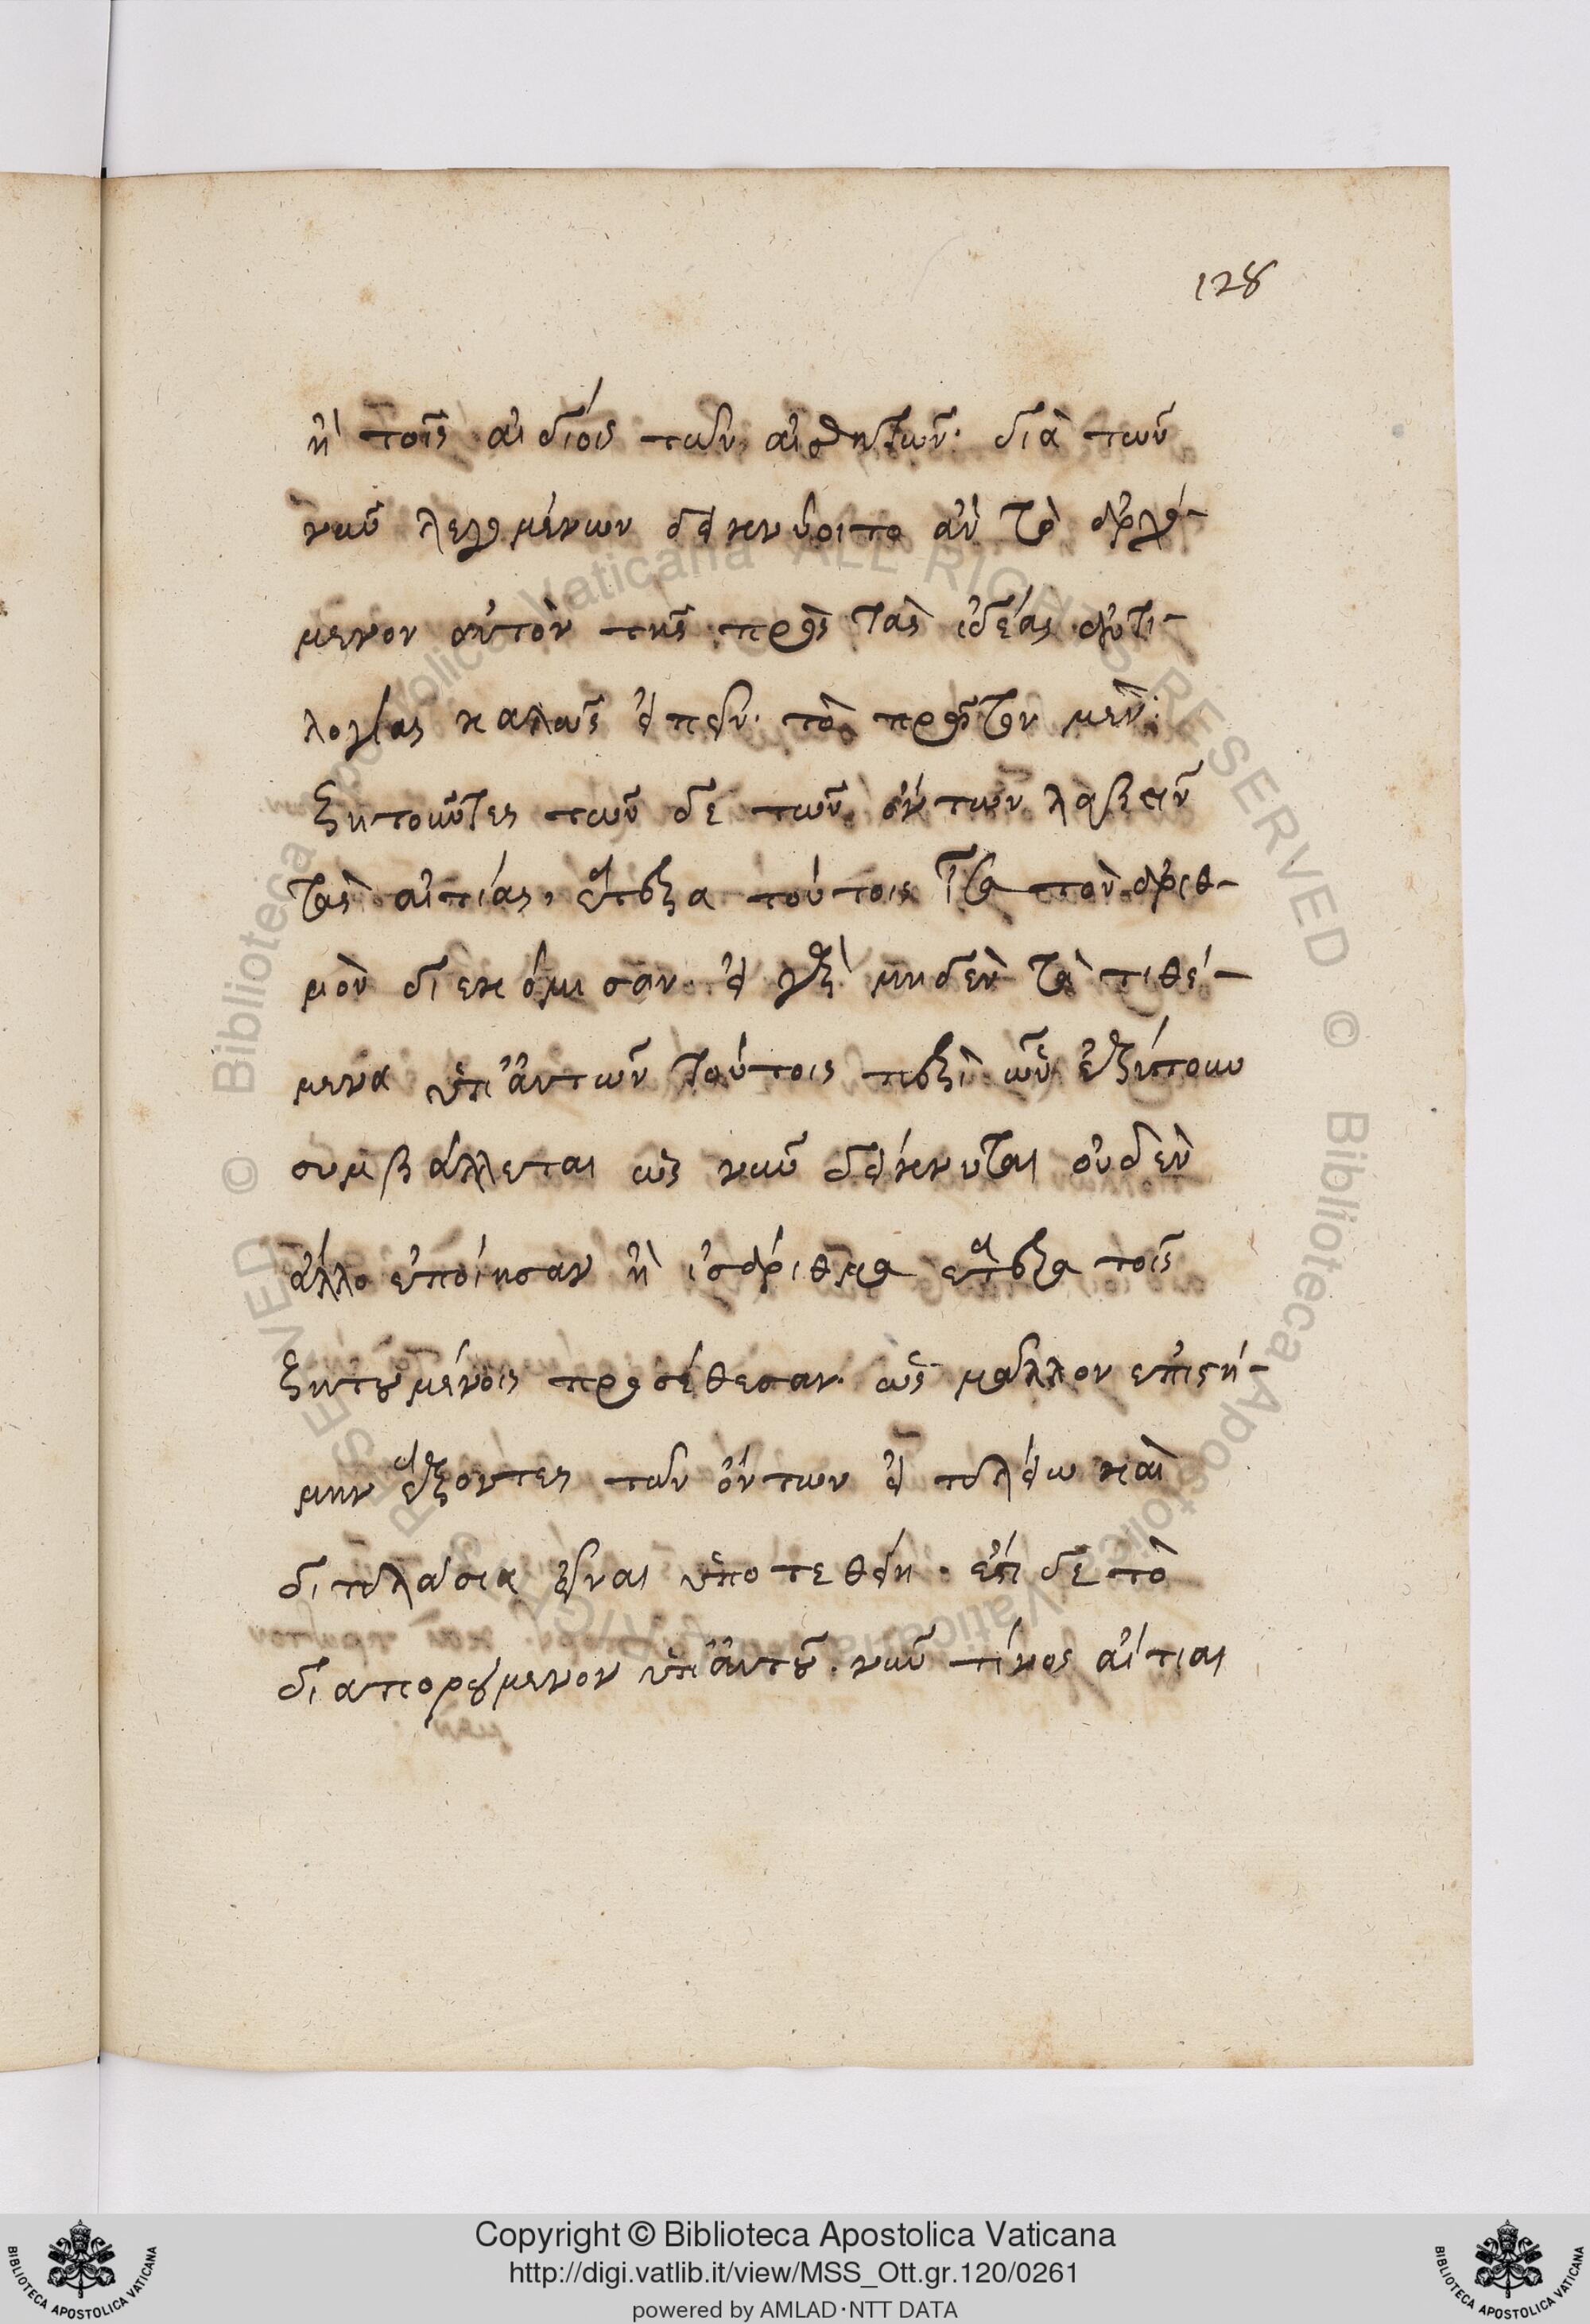 128
ἢ τοῖς ἀϊδίοις τῶν αἰσθητῶν· διὰ τῶν
νῦν λεγομένων δεικνύοιτο ἂν τὸ ἀρχό-
μενον αὐτὸν τῆς πρὸς τὰς ἰδέας ἀντι-
λογίας καλῶς εἰπεῖν· τὸ πρῶτον μὲν
ζητοῦντες τῶν δὲ τῶν ὄντων λαβεῖν
τὰς αἰτίας, ἕτερα τούτοις ἴσα τὸν ἀριθ-
μὸν διεκόμισαν· εἰ γὰρ μηδὲν τὰ τιθέ-
μενα ὑπ' αὐτῶν τούτοις περὶ ὧν ἐζήτουν
συμβάλλεται ὡς νῦν δείκνυται οὐδὲν
ἄλλο ἐποίησαν ἢ ἰσάριθμα ἕτερα τοῖς
ζητουμένοις προσέθεσαν· ὡς μᾶλλον ἐπιστή-
μην ἕξοντες τῶν ὄντων εἰ πλείω καὶ
διπλάσια εἶναι ὑποτεθείη· ἐπὶ δὲ τὸ
διαπορούμενον ὑπ' αὐτοῦ νῦν τίνος αἴτιαι
Copyright © Biblioteca Apostolica Vaticana
http://digi.vatlib.it/view/MSS_Ott.gr.120/0261
powered by AMLAD·NTT DATA
BIBLIOTECA APOSTOLICA VATICANA
BIBLIOTECA APOSTOLICA VATICANA